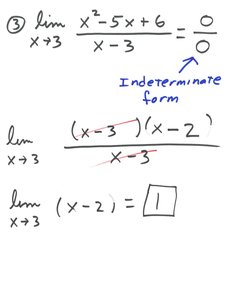 ③ lim x→3 (x² - 5x + 6)/(x - 3) = 0/0
Indeterminate
form
lim x→3 (x-3)(x-2)/(x-3)
lim x→3 (x-2) = 1